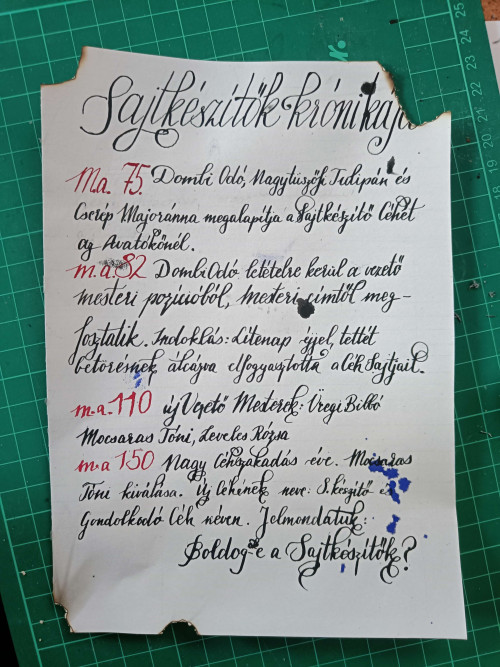 Sajtkészítők krónikája
Ma. 75. Dombi Odó, Nagytüszők Tulipán és
Cserép Majoránna megalapítja a Sajtkészítő Céhet
az Avatókőnél.
m.a. 82 Dombi Odó letételre kerül a vezető
mesteri pozícióból, mesteri címtől meg-
fosztatik. Indoklás: Litenap éjjel, tettét
betörőnek álcázva elfogyasztotta a céh Sajtjait.
m.a. 110 új Vezető Mesterek: Üregi Bilbó
Mocsaras Tóni, Leveles Rózsa
m.a 150 Nagy Céhszakadás éve. Mocsaras
Tóni kiválása. Új céhének neve: S.készítő és
Gondolkodó Céh néven. Jelmondatuk:
Boldog-e a Sajtkészítők?
25
24
23
22
21
20
19